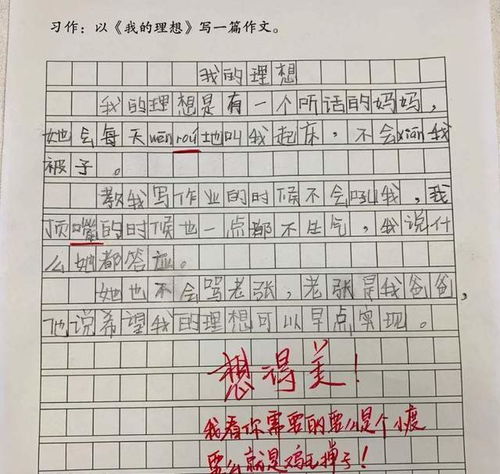 习作：以《我的理想》写一篇作文。
我的理想
我的理想是有一个听话的妈妈，
她会每天wēn róu地叫我起床，不会xiān我
被子。
教我写作业的时候不会吼我，我
顶嘴的时候也一点都不生气，我说什
么她都答应。
她也不会骂老张，老张是我爸爸，
他说希望我的理想可以早点实现。
想得美！
我看你需要的要么是个小度
要么就是鸡毛掸子！